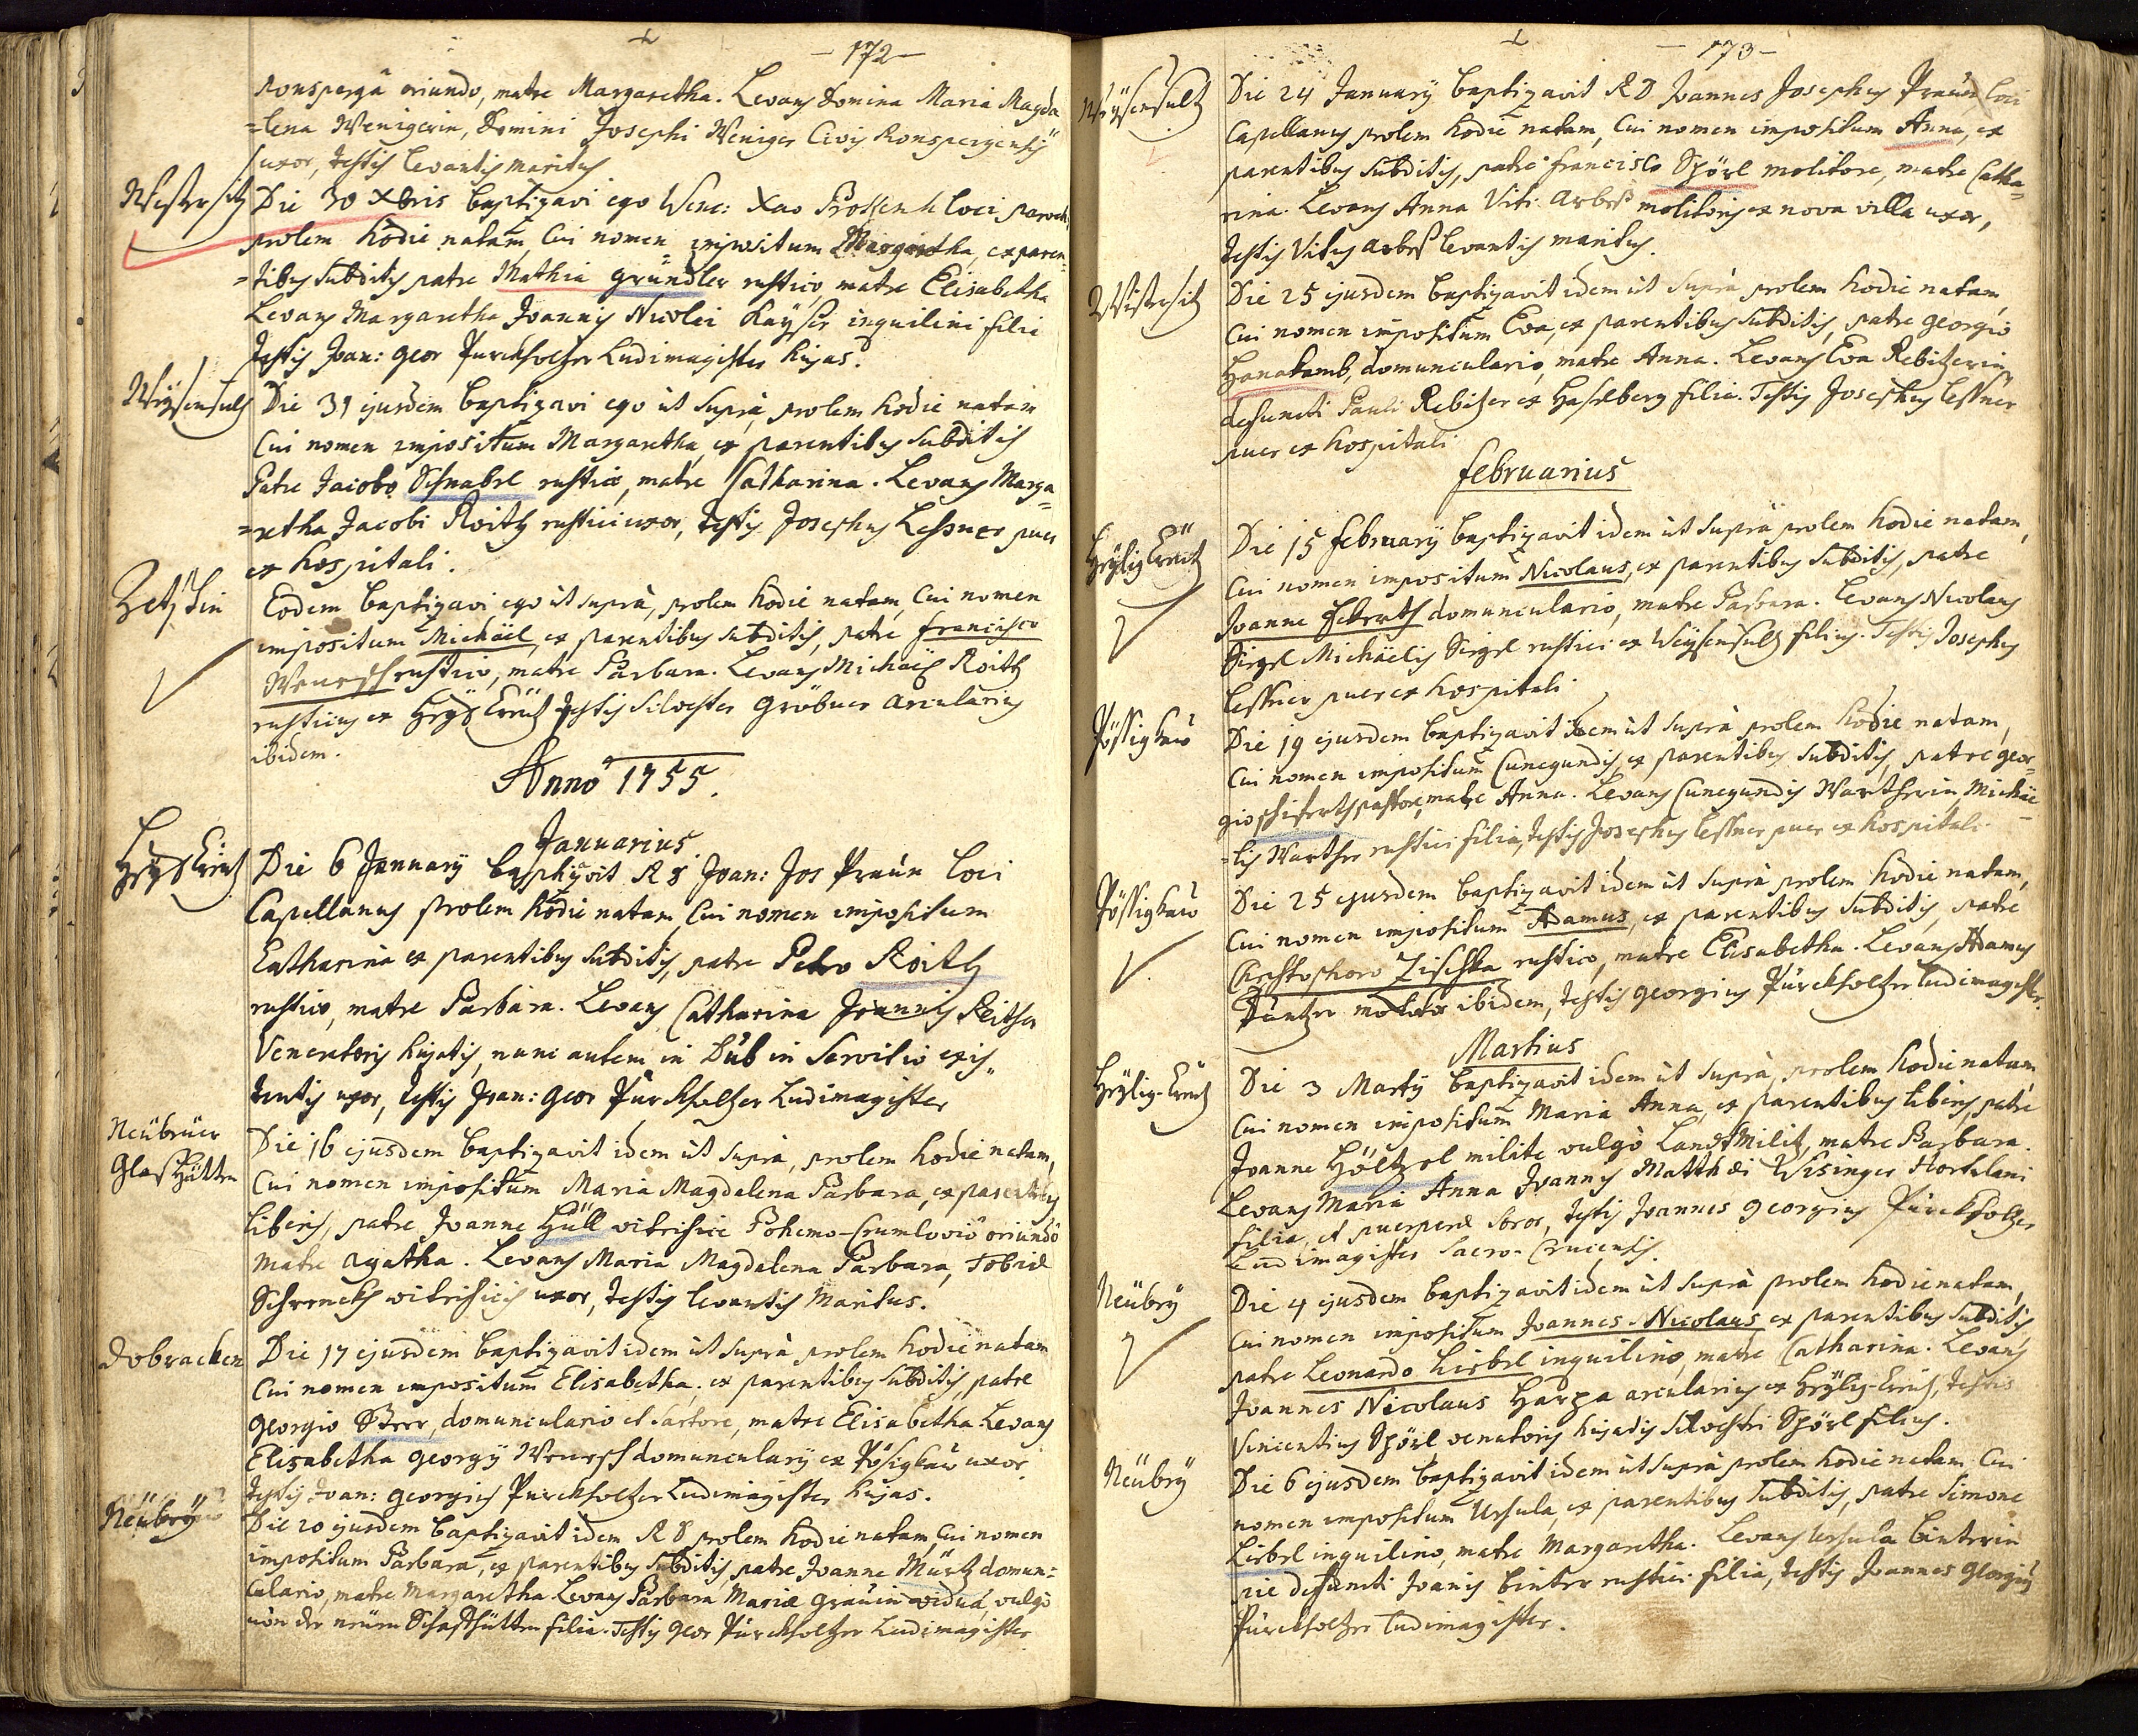 - 172 -
Ronspergâ oriundo, matre Margaretha. Levans Domina Maria Magda
=lena Wenigerin, Domini Josephi Weniger Civis Ronspergensis
uxor, testis levantis maritus
Die 30 Xbris baptizavi ego Wenc: Xav loci paroch:
prolem hodie natam, Cui nomen impositum Margaretha, ex paren=
=tibus subditis patre Mathia Gründler rustico, matre Elisabetha
Levans Margaretha Joannis Nicolai Kayser inquilini filia
Testis Joan: Geor Purckholtzer Ludimagister hujas.
Weÿsensultz
Die 31 ejusdem baptizavi ego ut suprà, prolem hodie natam
Cui nomen impositum Margaretha, ex parentibus subditis
Patre Jacobo Schnabel rustico, matre Catharina. Levans Marga=
=retha Jacobi Roith rustici uxor, testis Josephus Lessner puer
ex hospitali.
Eodem baptizavi ego ut suprà, prolem hodie natam, Cui nomen
impositum Michäel, ex parentibus subditis, patre Francisco
Weursch rustico, matre Barbara. Levans Michäel Roith
rusticus ex Heyl Creutz testis Silvester Gröbner arcularius
ibidem.
Anno 1755.
Januarius
Heyl Creutz
Die 6 Januarÿ baptizavit R D Joan: Jos Praún loci
Capellanus prolem hodie natam, Cui nomen impositum
Catharina ex parentibus subditis, patre Petro Roith
rustico, matre Barbara. Levans Catharina Joannis
Venatoris hujatis, nunc autem in Dúb in Servitio exis=
tentis uxor, testis Joan: Geor Púrckholtzer Ludimagister
Neübruer
Glaßhütten
Die 16 ejusdem baptizavit idem ut suprà, prolem hodie natam,
Cui nomen impositum Maria Magdalena Barbara, ex parentibus
liberis, patre Joanne Hüll vitrifice Bohemo-Crumlovio oriundô
Matre Agatha. Levans Maria Magdalena Barbara, Tobiæ
vitrificis uxor, testis levantis Maritus.
Dobracken
Die 17 ejusdem baptizavit idem ut suprà prolem hodie natam
Cui nomen impositum Elisabetha, ex parentibus subditis, patre
Georgio domunculario et sartore, matre Elisabetha. Levans
Elisabetha Georgÿ Weursch domuncularÿ ex Pösigkau uxor
Testis Joan: Georgius Purckholtzer Ludimagister hujas.
Neübrÿ
Die 20 ejusdem baptizavit idem R D prolem hodie natam, Cui nomen
impositum Barbara, ex parentibus subditis, patre Joanne Mürtz domun=
culario, matre Margaretha Levans Barbara Mariæ Gräuin vidua, vulgò
von der neuen Schafhütten filia. Testis Geor Purckholtzer Ludimagister
- 173 -
Weÿsensultz
Die 24 Januarÿ baptizavit R D Joannes Josephus Praún loci
Capellanus prolem hodie natam, Cui nomen impositum Anna, ex
parentibus subditis, patre Francisco Spörl molitore, matre Catha=
rina. Levans Anna Viti Arbeß molitoris ex nova villa uxor,
testis Vitus Arbeß levantis maritus.
Die 25 ejusdem baptizavit idem ut suprà prolem hodie natam,
Cui nomen impositum Eva, ex parentibus subditis, patre Georgio
Hanakamb, domunculario, matre Anna. Levans Eva Rebitzerin
defuncti Pauli Rebitzer ex Haselberg filia. Testis Josephus Lessner
puer ex hospitali
Februarius
Heÿlig Creütz
Die 15 Februarÿ baptizavit idem ut suprà prolem hodie natam,
Cui nomen impositum Nicolaus, ex parentibus subditis, patre
Joanne domunculario, matre Barbara. Levans Nicolaus
Siegel Michäelis Siegel rustici ex Weÿsensultz filius. Testis Josephus
Lessner puer ex hospitali
Pössigkau
Die 19 ejusdem baptizavit idem ut suprà prolem hodie natam,
Cui nomen impositum Cunegundis, ex parentibus subditis, patre Geor=
gio pastore, matre Anna. Levans Cunegundis Wartherin, Michäe=
=lis Warther rustici filia, testis Josephus Lessner puer ex hospitali
Pössigkau
Die 25 ejusdem baptizavit idem ut suprà prolem hodie natam,
Cui nomen impositum Adamus, ex parentibus subditis, patre
Christophoro Zischka rustico, matre Elisabetha. Levans Adamus
molitor ibidem, testis Georgius Púrckholtzer Ludimagister.
Martius
Heÿlig-Creutz
Die 3 Martÿ baptizavit idem ut suprà, prolem hodie natam
Cui nomen impositum Maria Anna, ex parentibus liberis, patre
Joanne Höltzel milite vulgò Landtmilitz, matre Barbara.
Levans Maria Anna Joannis Matthæi Wisinger Hortulani
filia, et puerperæ soror, testis Joannes Georgius Púrckholtzer
Ludimagister Sacro-Crucensis.
Neübrÿ
Die 4 ejusdem baptizavit idem ut suprà prolem hodie natam,
Cui nomen impositum Joannes-Nicolaus ex parentibus subditis
patre Leonardo Liebel inquilino, matre Catharina. Levans
Joannes Nicolaus Harza arcularius ex Heÿlig-Creutz, testis
Vincentius Spörl venatoris hujatis Silvestri Spörl filius.
Neübrÿ
Die 6 ejusdem baptizavit idem ut suprà prolem hodie natam Cui
nomen impositum Ursula, ex parentibus subditis, patre Simone
Liebel inquilino, matre Margaretha. Levans Ursula Binterin
defuncti Joanis Binter rustici filia, testis Joannes Georgius
Púrckholtzer Ludimagister.